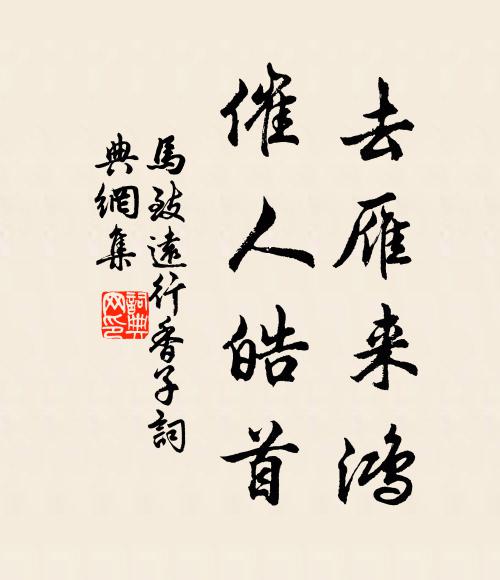 去雁来鸿
催人皓首
馬致遠行香子詞
典網集
詞典网印